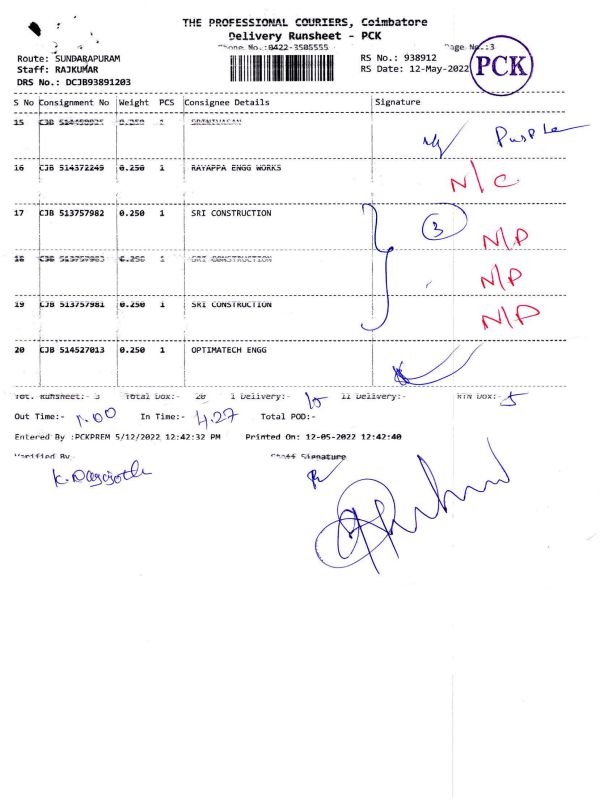 THE PROFESSIONAL COURIERS, Coimbatore
Delivery Runsheet - PCK
Phone No.:0422-3505555 Page No.:3
Route: SUNDARAPURAM RS No.: 938912
Staff: RAJKUMAR RS Date: 12-May-2022 PCK
DRS No.: DCJB93891203
S No Consignment No Weight PCS Consignee Details Signature
15 CJB 0.250 1 SRINIVASAN
Purple
16 CJB 514372249 0.250 1 RAYAPPA ENGG WORKS
N/C
17 CJB 513757982 0.250 1 SRI CONSTRUCTION 3
N/P
18 CJB 513757983 0.250 1 SRI CONSTRUCTION
N/P
19 CJB 513757981 0.250 1 SRI CONSTRUCTION N/P
20 CJB 514527013 0.250 1 OPTIMATECH ENGG
Tot. Runsheet:- 3 Total Dox:- 20 I Delivery:- 15 II Delivery:- RTN Dox:- 5
Out Time:- 1.00 In Time:- 4.27 Total POD:-
Entered By :PCKPREM 5/12/2022 12:42:32 PM Printed On: 12-05-2022 12:42:40
Verified By Staff Signature